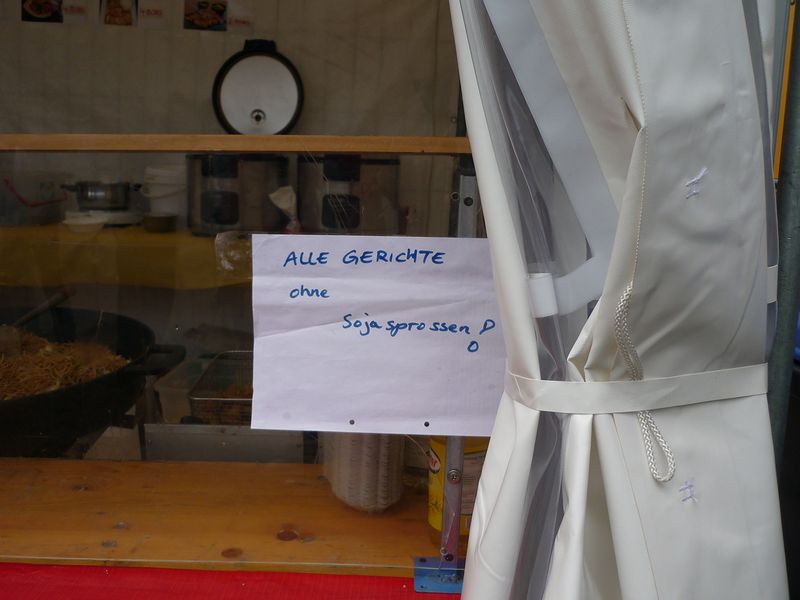 ALLE GERICHTE
ohne
Sojasprossen!